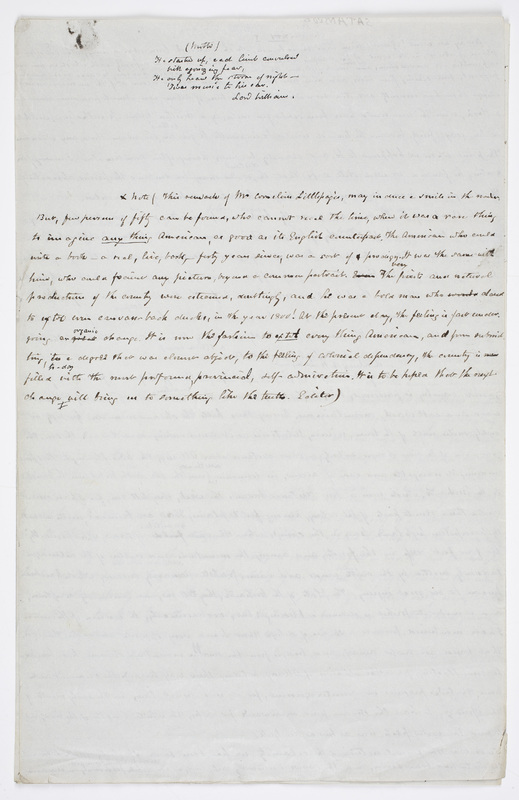 (Motto)
He started up, each limb convulsed
With agonizing fear,
He only heard the storm of night—
'Twas music to his ear.
Lord William.
* Note (This remark of Mr. Cornelius Littlepage's, may induce a smile in the reader.
But, few persons of fifty can be found, who cannot recall the time, when it was a rare thing
to imagine any thing American, as good as its English counterpart. The American who could
write a book—a real, live, book—forty years since, was a sort of prodigy. It was the same with
him, who had been any picture, beyond a common portrait. The fruits and natural
productions of the country were esteemed, doubtingly, and he was a bold man who dared
to extol even canvass-back ducks, in the year 1800! At the present day, the feeling is fast under-
going an organic change. It is now the fashion to extol every thing American, and from submit-
ting, to a degree that was almost abject, to the feeling of colonial dependency, the country is
filled to-day with the most profound, provincial, self-admiration. It is to be hoped that the next
change will bring us to something like the truth. Editor)